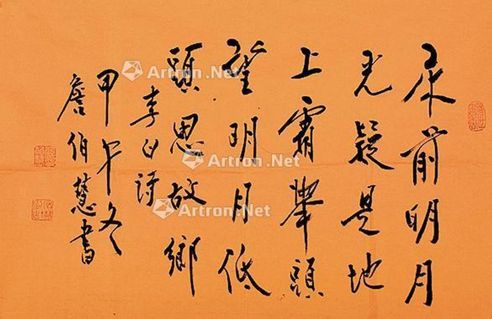 床前明月
光疑是地
上霜舉頭
望明月低
頭思故鄉
李白詩
甲午冬
詹伯慧書
Artron.Net
Artron.Net
Artron.Net
Artron.Net